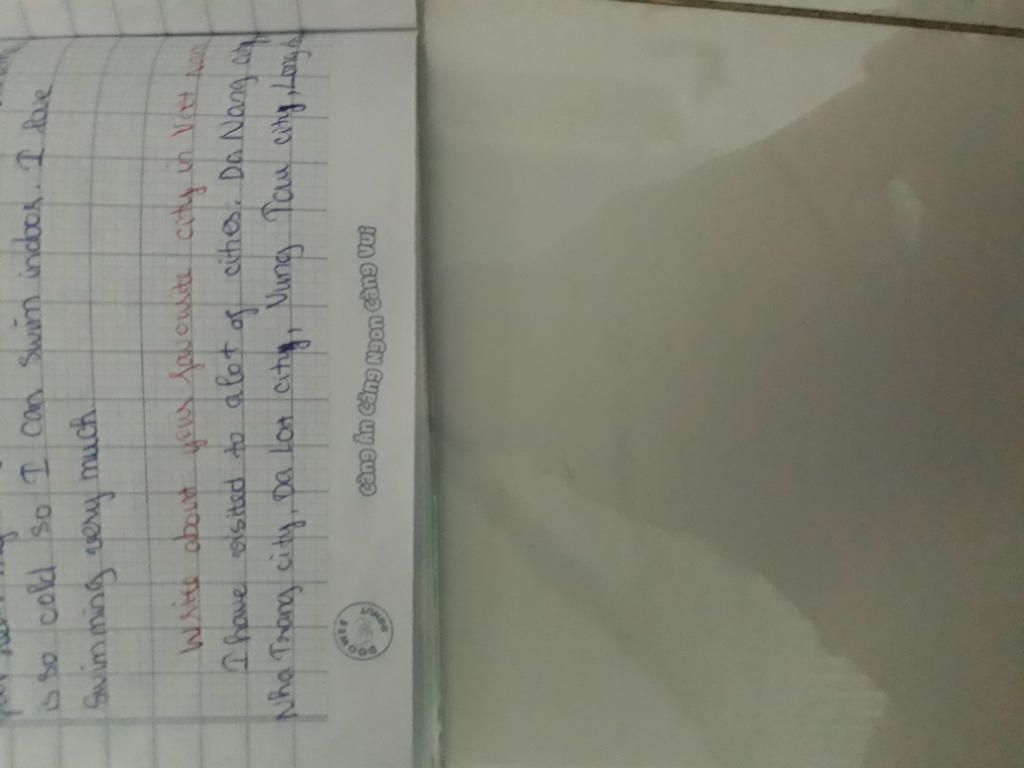 is so cold so I can swim indoor. I love
Swimming very much
Write about your favourite city in Viet nam
I have visited to a lot of cities: Da Nang city
Nha Trang city, Da Lat city, Vung Tau city, Long
Càng Ăn Càng Ngon Càng Vui